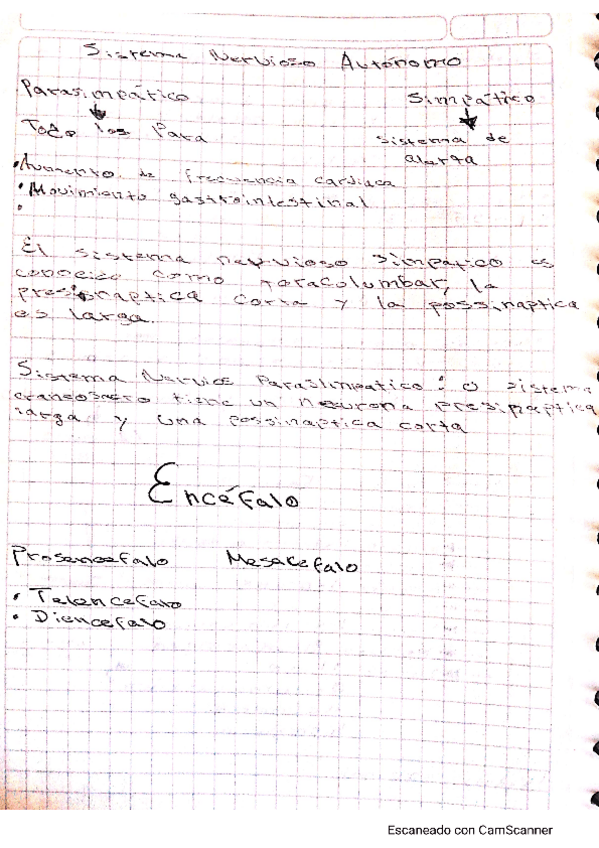 Sistema Nervioso Autónomo
Parasimpático
Simpático
Todo los Para
Sistema de
alerta
• Aumento de frecuencia cardiaca
• Movimiento gastrointestinal
•
El sistema nervioso simpatico es
conocido como toracolumbar, la
presinaptica corta y la possinaptica
es larga.
Sistema Nervios Parasimpatico: o sistema
craneosacro tiene un neurona presinaptica
larga y una possinaptica corta
Encéfalo
Prosencefalo Mesacefalo
• Telencefalo
• Diencefalo
Escaneado con CamScanner